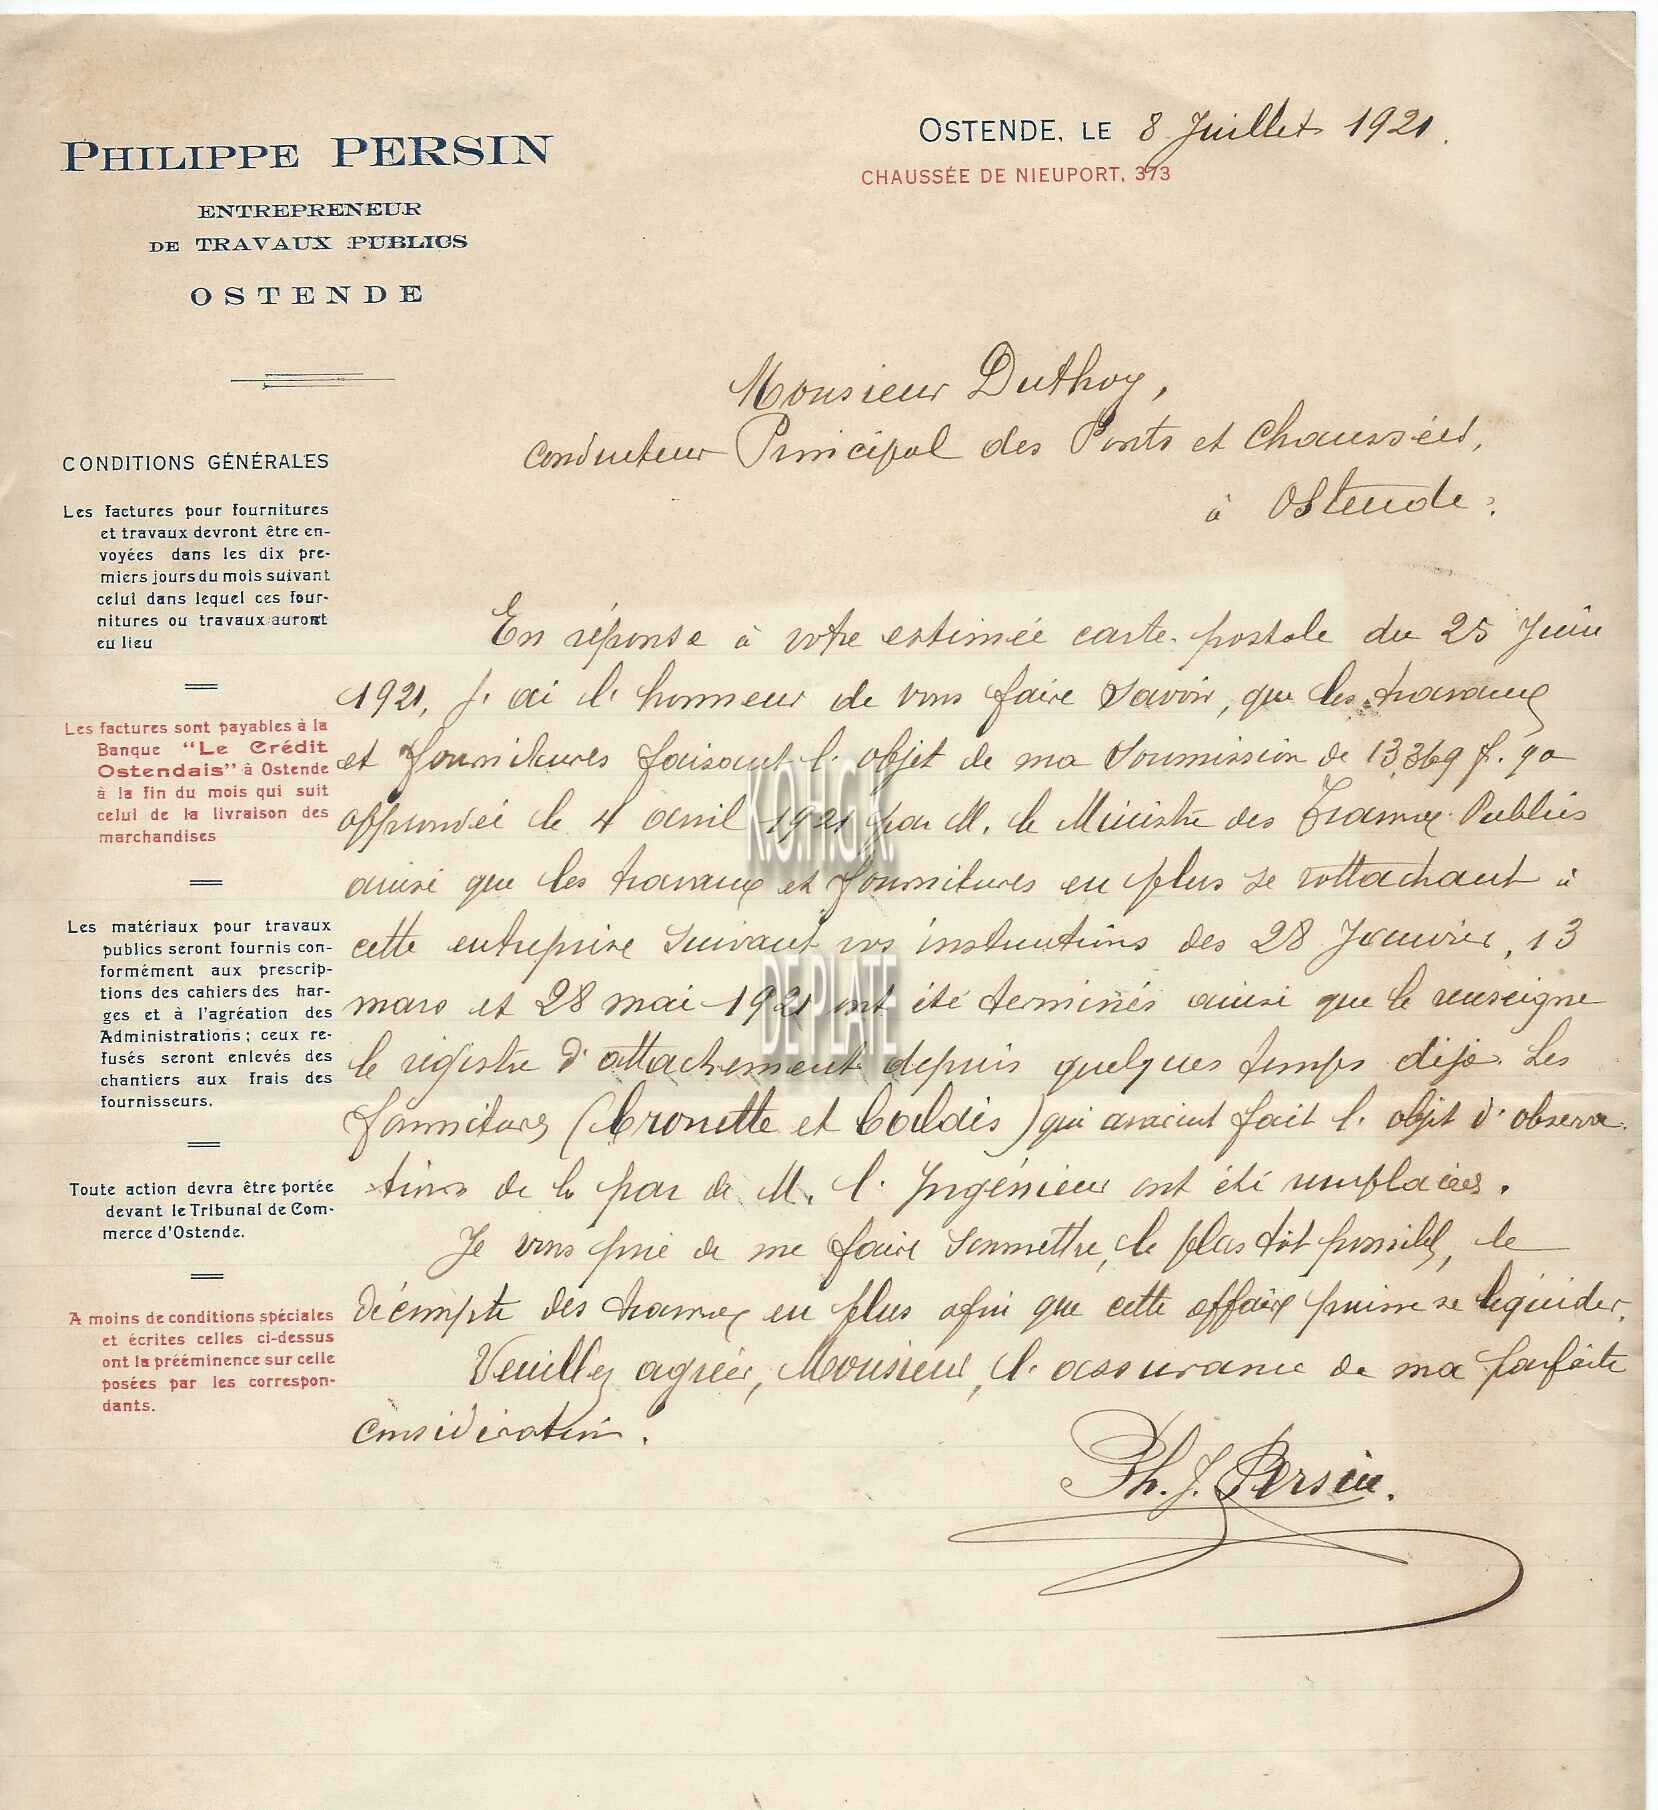 PHILIPPE PERSIN
ENTREPRENEUR
DE TRAVAUX PUBLICS
OSTENDE
OSTENDE, LE 8 Juillet 1921.
CHAUSSÉE DE NIEUPORT, 373
CONDITIONS GÉNÉRALES
Les factures pour fournitures
et travaux devront être en-
voyées dans les dix pre-
miers jours du mois suivant
celui dans lequel ces four-
nitures ou travaux auront
eu lieu
Les factures sont payables à la
Banque "Le Crédit
Ostendais" à Ostende
à la fin du mois qui suit
celui de la livraison des
marchandises
Les matériaux pour travaux
publics seront fournis con-
formément aux prescrip-
tions des cahiers des har-
ges et à l'agréation des
Administrations; ceux re-
fusés seront enlevés des
chantiers aux frais des
fournisseurs.
Toute action devra être portée
devant le Tribunal de Com-
merce d'Ostende.
A moins de conditions spéciales
et écrites celles ci-dessus
ont la prééminence sur celle
posées par les correspon-
dants.
Monsieur Duthoy,
Conducteur Principal des Ponts et Chaussées,
à Ostende.
En réponse à votre estimée carte-postale du 25 Juin
1921, j'ai l'honneur de vous faire savoir, que les travaux
et fournitures faisant l'objet de ma soumission de 13,369 f. 90
approuvée le 4 avril 1921 par M. le Ministre des Travaux Publics
ainsi que les travaux et fournitures en plus se rattachant à
cette entreprise suivant vos instructions des 28 Janvier, 13
mars et 28 mai 1921 ont été terminés ainsi que le renseigne
le régistre d'attachement depuis quelques temps déjà. Les
fournitures (Cronette et Coaldès) qui avaient fait l'objet d'observa-
tions de la par de M. l'Ingénieur ont été remplacées.
Je vous prie de me faire soumettre, le plus tôt possible, le
décompte des travaux en plus afin que cette affaire puisse se liquider.
Veuillez agréer, Monsieur, l'assurance de ma parfaite
considération.
Ph. J. Persin.
K.O.H.G.K.
DE PLATE